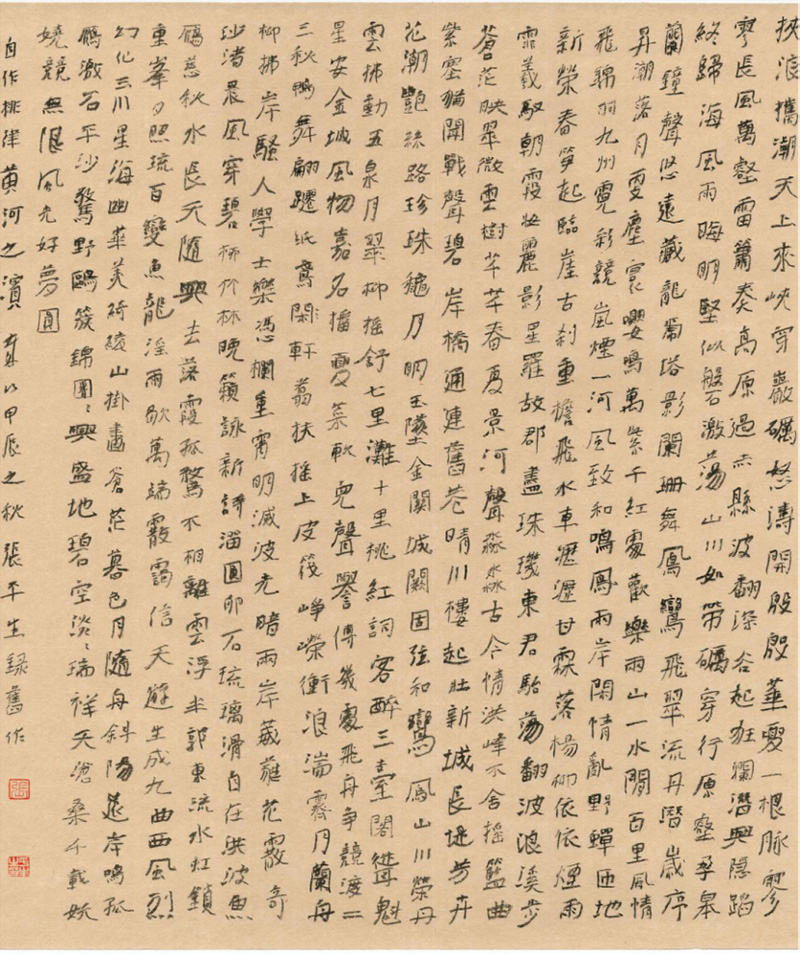 挾浪攜潮天上來峽穿巖礪怒濤開殷殷華夏一根脉寥
寥長風萬壑雷簫奏高原過赤縣波翻深谷起狂瀾潛興隱蹈
終歸海風雨晦明堅似磐石激蕩山川如帶礪穿行原壑孕皋
蘭鐘聲悠遠藏龍蜀塔影闌珊舞鳳鸞飛翠流丹潛歲序
昇潮落月更塵寰嚶鳴萬紫千紅處歡樂兩山一水間百里風情
飛錦羽九州霓彩競嵐煙一河風致和鳴鳳兩岸閑情亂野蟬匝地
新榮春筍起臨崖古刹重檐飛水車瀝瀝甘霖落楊柳依依煙雨
霏羲馭朝霞妝麗影星羅故郡盡珠璣東君駘蕩翻波浪溪步
蒼茫映翠微雲樹芊芊春夏景河聲淼淼古今情洪峰不舍搖籃曲
紫塞猶聞戰聲碧岸橋通連舊巷晴川樓起壯新城長堤芳卉
花潮艷絲路珍珠龜月明玉墜金關城闕固弦和鸞鳳山川榮丹
雲拂動五泉月翠柳搖舒七里灘十里桃紅詞客醉三臺閣聳魁
星安金城風物嘉名播夏菜軟兒聲譽傳幾處飛舟争競渡二
三秋鴨舞翩躚紙鳶閑軒翥扶搖上皮筏崢嶸衝浪湍霽月蘭舟
柳拂岸騷人學士樂憑欄重霄明滅波光暗兩岸葳蕤花霰奇
沙渚晨風穿碧柳竹林晚籟詠新詩淄圓卵石琉璃滑自在洪波魚
雁慈秋水長天隨興去落霞孤鶩不相離雲浮半郭東流水虹鎖
重峯夕照琉百變魚龍淫雨歇萬端霰靄信天遊生成九曲西風烈
幻化三川星海幽華美綺綾山掛畫蒼茫暮色月隨舟斜陽遠岸鳴孤
雁激石平沙驚野鷗簇錦團團興盛地碧空淡淡瑞祥天滄桑千載妖
嬈競無限風光好夢圓
自作排律黄河之濱 歲次甲辰之秋張平生録舊作